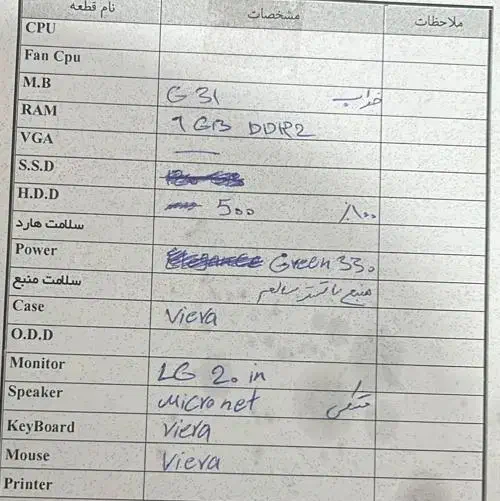 نام قطعه مشخصات ملاحظات
CPU
Fan Cpu
M.B G 31 خراب
RAM 1 GB DDR2
VGA —
S.S.D
H.D.D 500 ٪100
سلامت هارد
Power Green 330
سلامت منبع منبع با تستر سالم
Case Viera
O.D.D
Monitor LG 20 in
Speaker Micronet مشکی
KeyBoard Viera
Mouse Viera
Printer